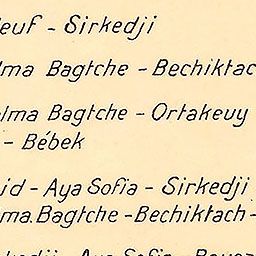 euf - Sirkedji
lma Bagtche - Bechiktac
lma Bagtche - Ortakeuy
- Bébek
id - Aya Sofia - Sirkedji
ma. Bagtche - Bechiktach -
kedji - Aya Sofia - Bayez